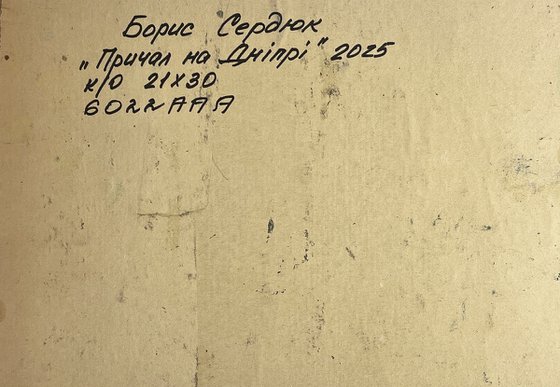 Борис Сердюк
„Причал на Дніпрі" 2025
к/о 21х30
6022ААА